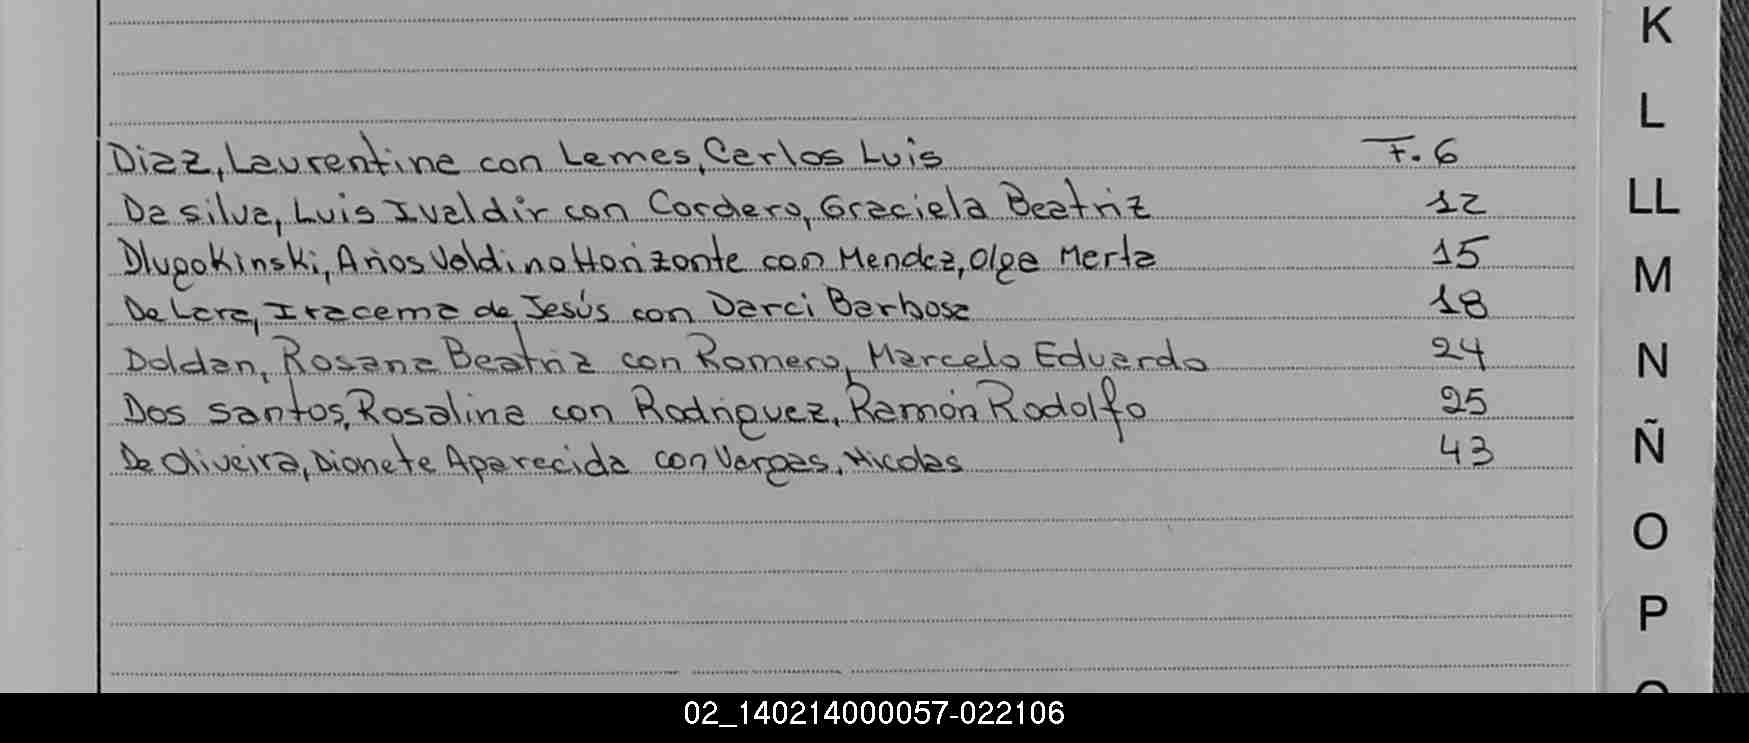 K
L
LL
M
N
Ñ
O
P
Diaz, Laurentina con Lemes, Carlos Luis F. 6
Da silva, Luis Ivaldir con Cordero, Graciela Beatriz 12
Dlugokinski, Arios Valdino Horizonte con Mendez, Olga Marta 15
De Lara, Iracema de Jesús con Darci Barbosa 18
Doldan, Rosana Beatriz con Romero, Marcelo Eduardo 24
Dos santos, Rosalina con Rodriguez, Ramón Rodolfo 25
De Oliveira, Dionete Aparecida con Vargas, Nicolas 43
02_140214000057-022106